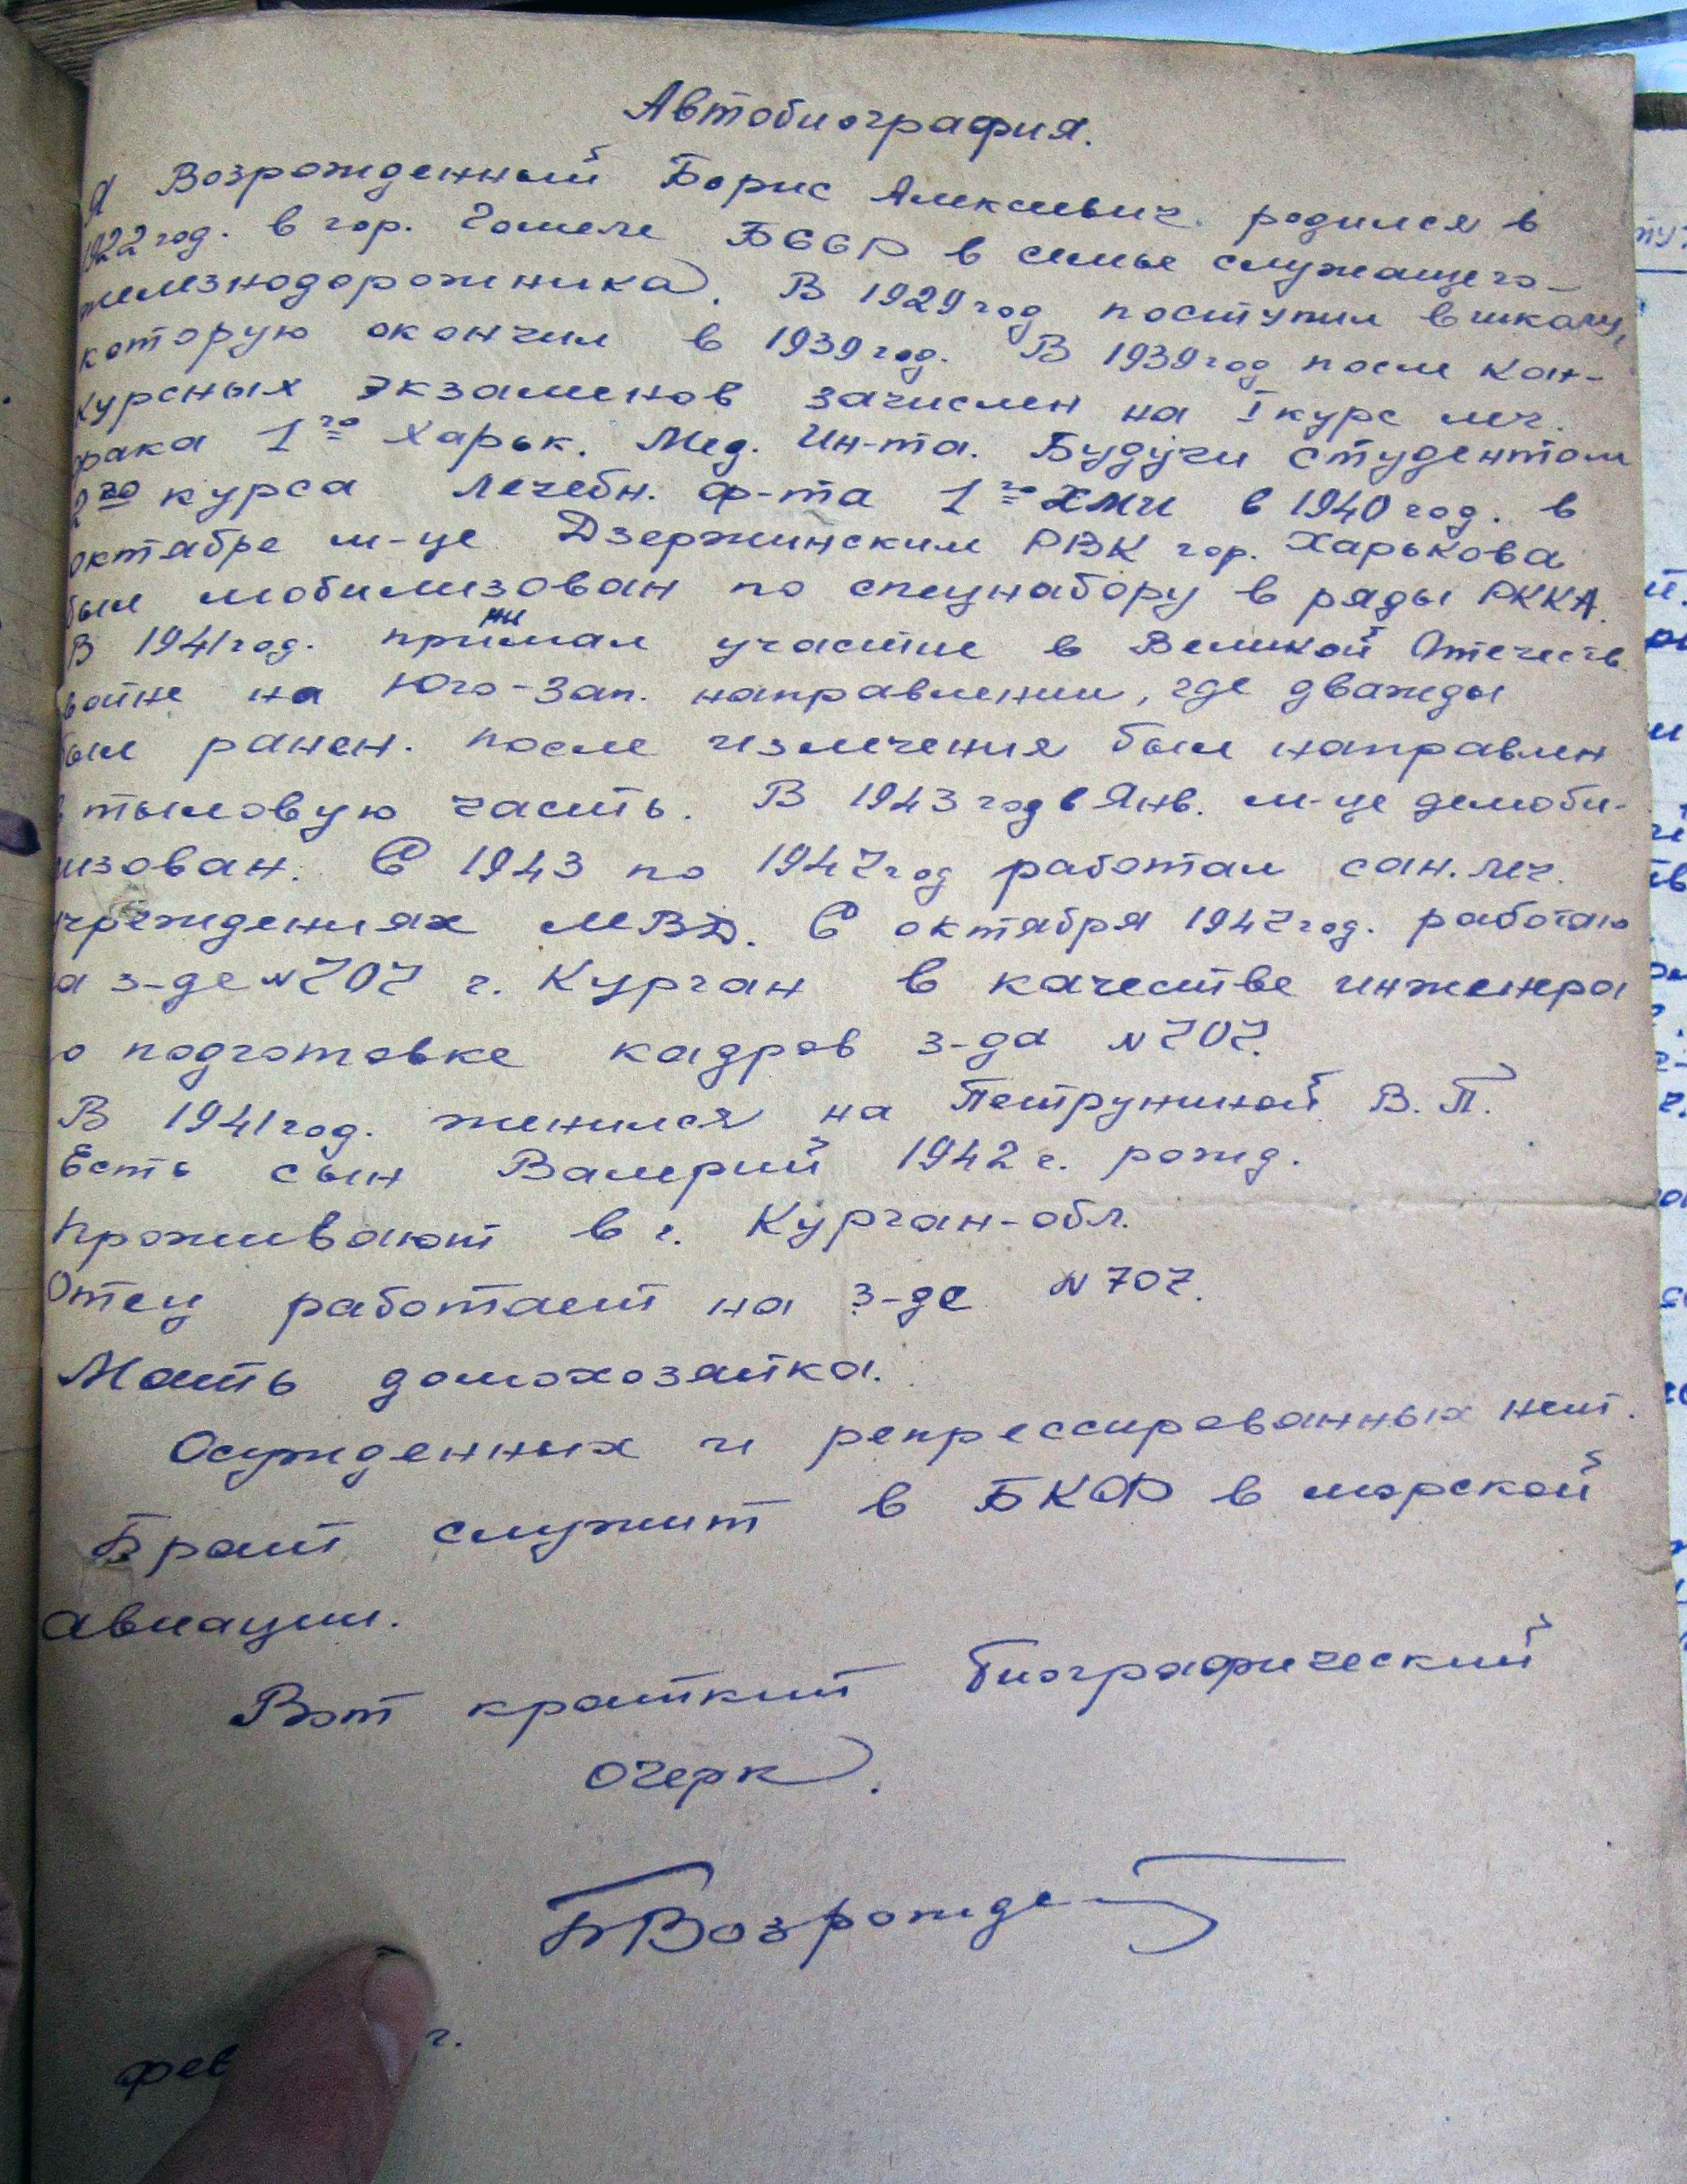 Автобиография.
Я Возрожденный Борис Алексеевич родился в
1922 год. в гор. Гомеле БССР в семье служащего-
железнодорожника. В 1929 год поступил в школу,
которую окончил в 1939 год. В 1939 год после кон-
курсных экзаменов зачислен на I курс леч.
фака 1го Харьк. Мед. Ин-та. Будучи студентом
2го курса Лечебн. ф-та 1го ХМИ в 1940 год. в
октябре м-це Дзержинским РВК гор. Харькова
был мобилизован по спецнабору в ряды РККА.
В 1941 год. принимал участие в Великой Отечеств.
войне на Юго-Зап. направлении, где дважды
был ранен. После излечения был направлен
в тыловую часть. В 1943 год в Янв. м-це демоби-
лизован. С 1943 по 1947 год работал сан. леч.
учреждениях МВД. С октября 1947 год. работаю
на з-де №707 г. Курган в качестве инженера
по подготовке кадров з-да №707.
В 1941 год. женился на Петруниной В. П.
Есть сын Валерий 1942 г. рожд.
Проживают в г. Курган-обл.
Отец работает на з-де №707.
Мать домохозяйка.
Осужденных и репрессированных нет.
Брат служит в БКФ в морской
авиации.
Вот краткий биографический
очерк.
БВозрожде
фев г.